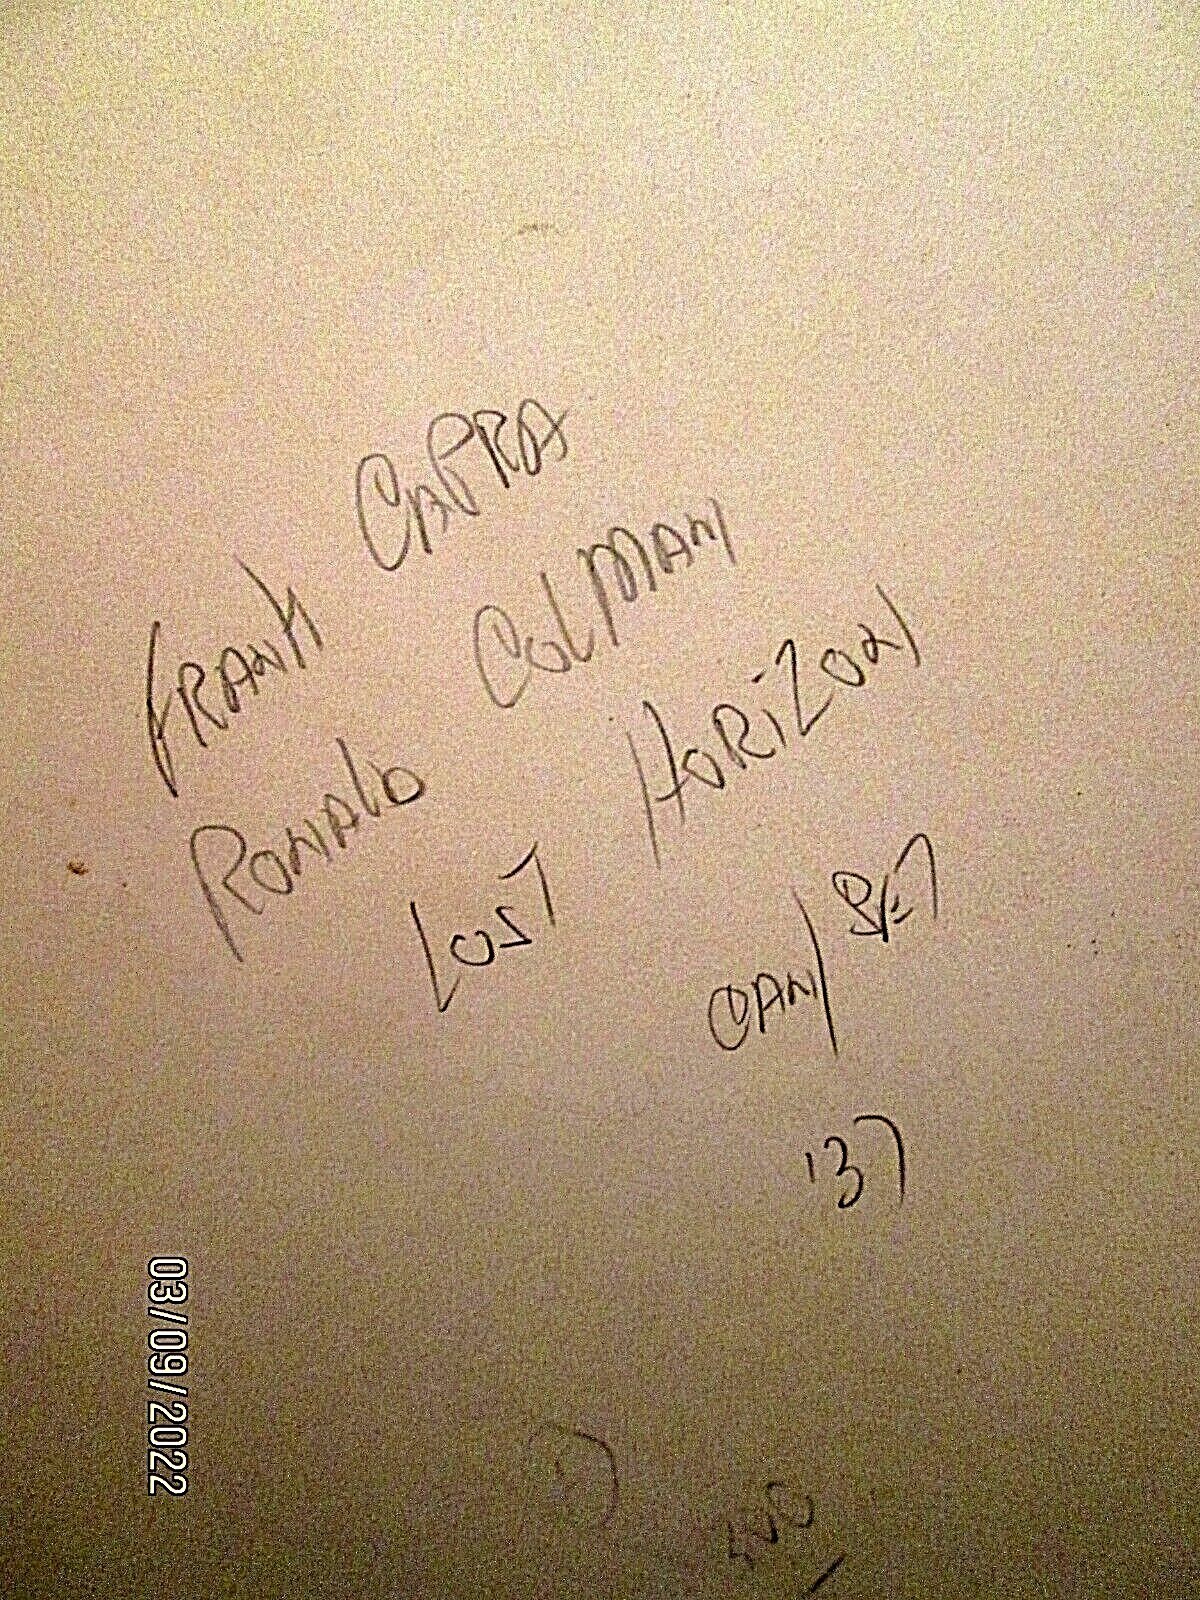 FRANK CAPRA
RONALD COLMAN
LOST HORIZON
ON SET
'37
03/09/2022